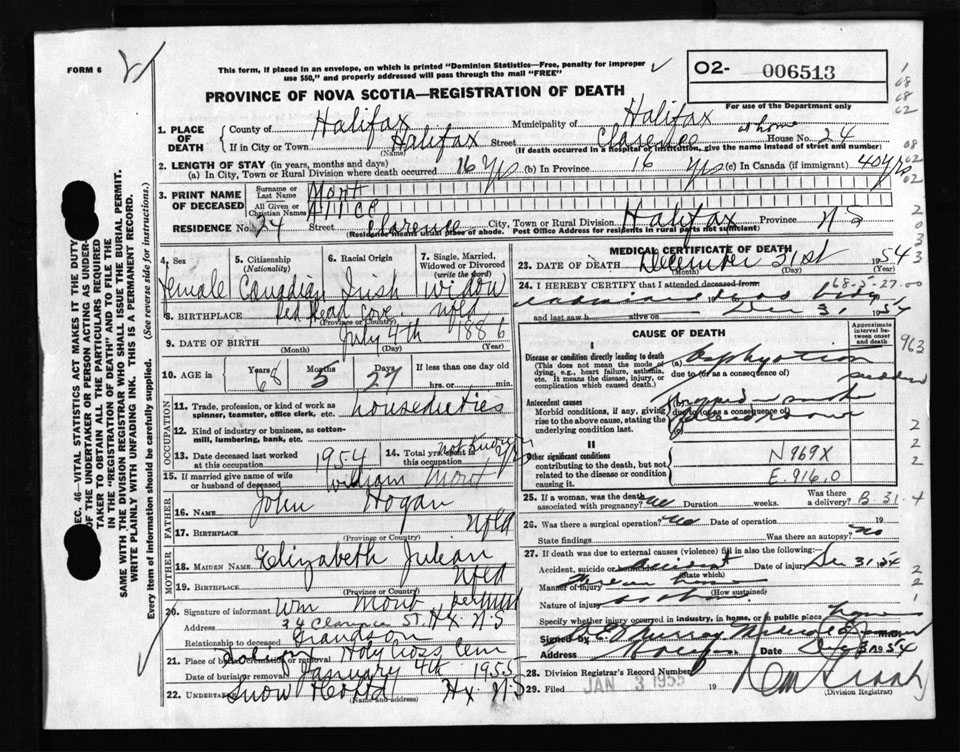 FORM 6
This form, if placed in an envelope, on which is printed "Dominion Statistics—Free, penalty for improper
use $50," and properly addressed will pass through the mail "FREE"
O2- 006513
For use of the Department only
PROVINCE OF NOVA SCOTIA—REGISTRATION OF DEATH
1. PLACE OF DEATH
County of Halifax Municipality of Halifax
at home
If in City or Town Halifax Street Clarence House No. 24
(Name) (If death occurred in a hospital or institution, give the name instead of street and number)
2. LENGTH OF STAY (in years, months and days)
(a) In City, Town or Rural Division where death occurred 16 yrs (b) In Province 16 yrs (c) In Canada (if immigrant) 40 yrs
3. PRINT NAME OF DECEASED
Surname or Last Name Mont
All Given or Christian Names Alice
RESIDENCE No. 24 Street Clarence City, Town or Rural Division Halifax Province N S
(Residence means usual place of abode. Post Office Address for residents in rural parts not sufficient)
4. Sex 5. Citizenship (Nationality) 6. Racial Origin 7. Single, Married, Widowed or Divorced (write the word)
female Canadian Irish widow
8. BIRTHPLACE Red Head Cove Nfld
(Province or Country)
9. DATE OF BIRTH July 4th 1886
(Month) (Day) (Year)
10. AGE in Years 68 Months 5 Days 27 If less than one day old hrs. or min.
OCCUPATION
11. Trade, profession, or kind of work as spinner, teamster, office clerk, etc. houseduties
12. Kind of industry or business, as cotton-mill, lumbering, bank, etc.
13. Date deceased last worked at this occupation 1954
14. Total yrs. spent in this occupation not known
15. If married give name of wife or husband of deceased William Mont
FATHER
16. Name John Hogan
17. Birthplace Nfld
(Province or Country)
MOTHER
18. MAIDEN NAME Elizabeth Julian
19. BIRTHPLACE Nfld
(Province or Country)
20. Signature of informant Wm Mont
Address 24 Clarence St. Hx. N.S
Relationship to deceased Grandson
21. Place of burial cremation or removal Halifax Holy Cross Cem
Date of burial or removal January 4th 1955
22. UNDERTAKER Snow Hx. N.S
(Name and address)
MEDICAL CERTIFICATE OF DEATH
23. DATE OF DEATH December 31st 1954
(Month) (Day) (Year)
68-5-27-00
24. I HEREBY CERTIFY that I attended deceased from:
and last saw h alive on Dec 31 1954
CAUSE OF DEATH
Approximate interval between onset and death
I
Disease or condition directly leading to death
(This does not mean the mode of dying, e.g., heart failure, asthenia, etc. It means the disease, injury, or complication which caused death.)
(a) Asphyxiation
due to (or as a consequence of) sudden
Antecedent causes
Morbid conditions, if any, giving rise to the above cause, stating the underlying condition last.
due to (or as a consequence of)
(c)
II
Other significant conditions
contributing to the death, but not related to the disease or condition causing it.
N969X
E.916.0
25. If a woman, was the death associated with pregnancy? No Duration weeks. Was there a delivery? B-31-4
26. Was there a surgical operation? No Date of operation 19
State findings Was there an autopsy? No
27. If death was due to external causes (violence) fill in also the following:
Accident, suicide or homicide Accident Date of injury Dec 31 54
(State which)
Manner of injury
(How sustained)
Nature of injury
Specify whether injury occurred in industry, in home, or in public place home
Signed by Murray
Address Halifax Date 1954
28. Division Registrar's Record Number
29. Filed JAN 3 1955 19
(Division Registrar)
SEC. 46—VITAL STATISTICS ACT MAKES IT THE DUTY
OF THE UNDERTAKER OR PERSON ACTING AS UNDER-
TAKER TO OBTAIN ALL THE PARTICULARS REQUIRED
IN THE "REGISTRATION OF DEATH" AND TO FILE THE
SAME WITH THE DIVISION REGISTRAR WHO SHALL ISSUE THE BURIAL PERMIT.
WRITE PLAINLY WITH UNFADING INK. THIS IS A PERMANENT RECORD.
Every item of information should be carefully supplied. (See reverse side for instructions.)
963